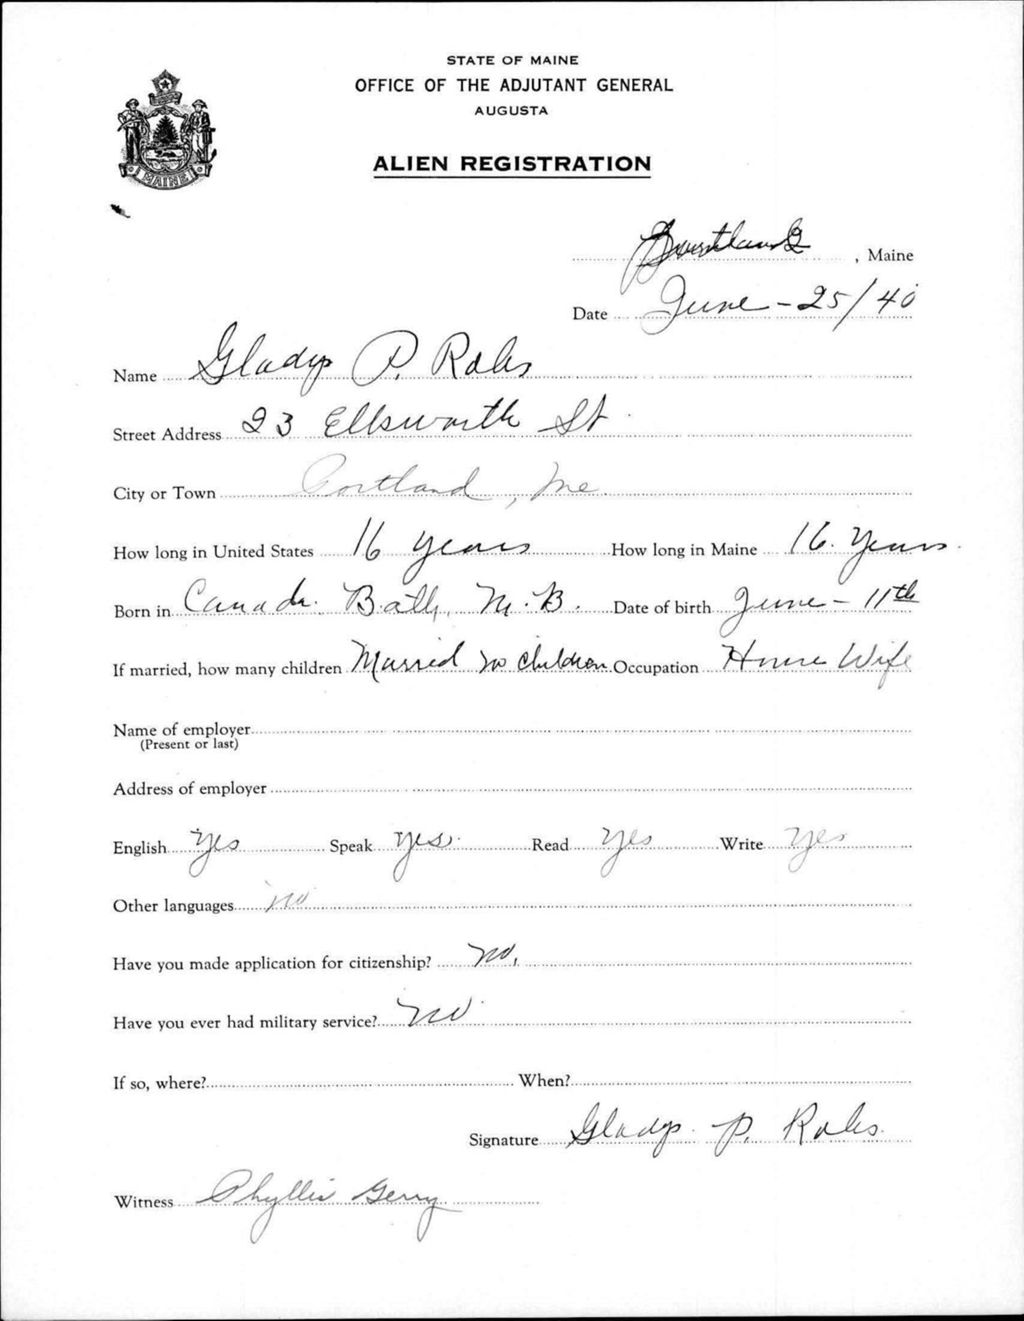 STATE OF MAINE
OFFICE OF THE ADJUTANT GENERAL
AUGUSTA
MAINE
ALIEN REGISTRATION
, Maine
Date June - 25/40
Name Gladys P. Roles
Street Address 23 Ellsworth St
City or Town Portland, Me
How long in United States 16 years How long in Maine 16. Years.
Born in Canada. Bath, N.B. Date of birth June - 11th
If married, how many children Married no children Occupation House Wife
Name of employer
(Present or last)
Address of employer
English Yes Speak Yes. Read Yes Write Yes
Other languages no
Have you made application for citizenship? no.
Have you ever had military service? no
If so, where? When?
Signature Gladys. P. Roles.
Witness Phyllis Gerry